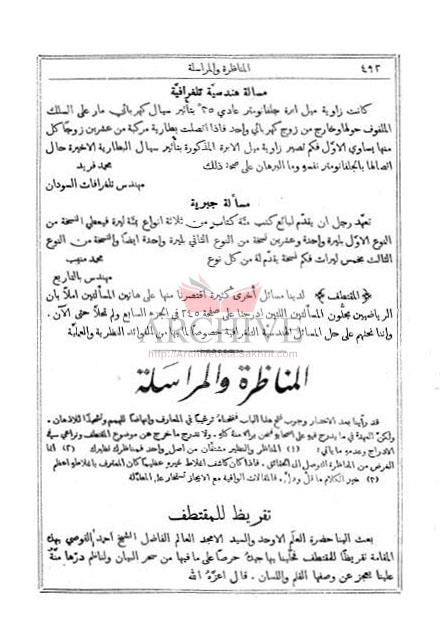 ٤٩٢
المناظرة والمراسلة
مسالة هندسيَّة تلغرافيَّة
كانت زاوية ميل ابرة جلفانومتر عادي ٢٥° بتأثير سيال كهربائي مار على السلك
الملفوف حولها وخارج من زوج كهربائي واحد فاذا اتصلت بطارية مركبة من عشرين زوجًا كل
منها يساوي الاوّل فكم تصير زاوية ميل الابرة المذكورة بتأثير سيال البطارية الاخيرة حال
اتصالها بالجلفانومتر نفسهِ وما البرهان على صحة ذلك
محمد فريد
مهندس تلغرافات السودان
مسألة جبرية
تعهَّد رجل ان يقدّم لبائع كتب مئة كتاب من ثلاثة انواع بمئة ليرة فيعطي النسخة من
النوع الاوّل بليرة واحدة وعشرين نسخة من النوع الثاني بليرة واحدة ايضًا والنسخة من النوع
الثالث بخمس ليرات فكم نسخة يقدّم لهُ من كل نوع
محمد منيب
مهندس بالتاريع
﴿المقتطف﴾ لدينا مسائل أخرى كثيرة اقتصرنا منها على هاتين المسألتين املاً بان
الرياضيين يحلُّون المسألتين اللتين ادرجنا على صفحة ٢٤٥ في الجزء السابع ولم تحلَّا حتى الآن.
وإننا نحثهم على حل المسائل الهندسية التلغرافية خصوصًا لما بهما من الفوائد النظرية والعملية
ARCHIVE
http://Archivebeta.Sakhrit.com
المناظرة والمراسلة
قد رأينا بعد الاختبار وجوب فتح هذا الباب ففتحناهُ ترغيبًا في المعارف وإنهاضًا للهمم وتشحيذًا للاذهان.
ولكنّ العهدة في ما يدرج فيهِ على اصحابهِ فنحن براءٌ منهُ كلهِ. ولا ندرج ما خرج عن موضوع المقتطف ونراعي في
الادراج وعدمهِ ما ياتي: (١) المناظر والنظير مشتقَّان من اصل واحد فمناظرك نظيرك (٢) انما
الغرض من المناظرة التوصل الى الحقائق. فاذا كان كاشف اغلاط غيرهِ عظيمًا كان المعترف باغلاطهِ اعظم
(٣) خير الكلام ما قلَّ ودلَّ. فالمقالات الوافية مع الايجاز تستخار على المطوَّلة
تقريظ للمقتطف
بعث الينا حضرة العلم الاوحد والسيد الامجد العالم الفاضل الشيخ احمد القوصي بهذه
المقامة تقريظًا للمقتطف فحلَّينا بها جيدهُ حرصًا على ما فيها من سحر البيان ولناظم درّها منَّة
علينا يعجز عن وصفها القلم واللسان. قال اعزَّهُ الله